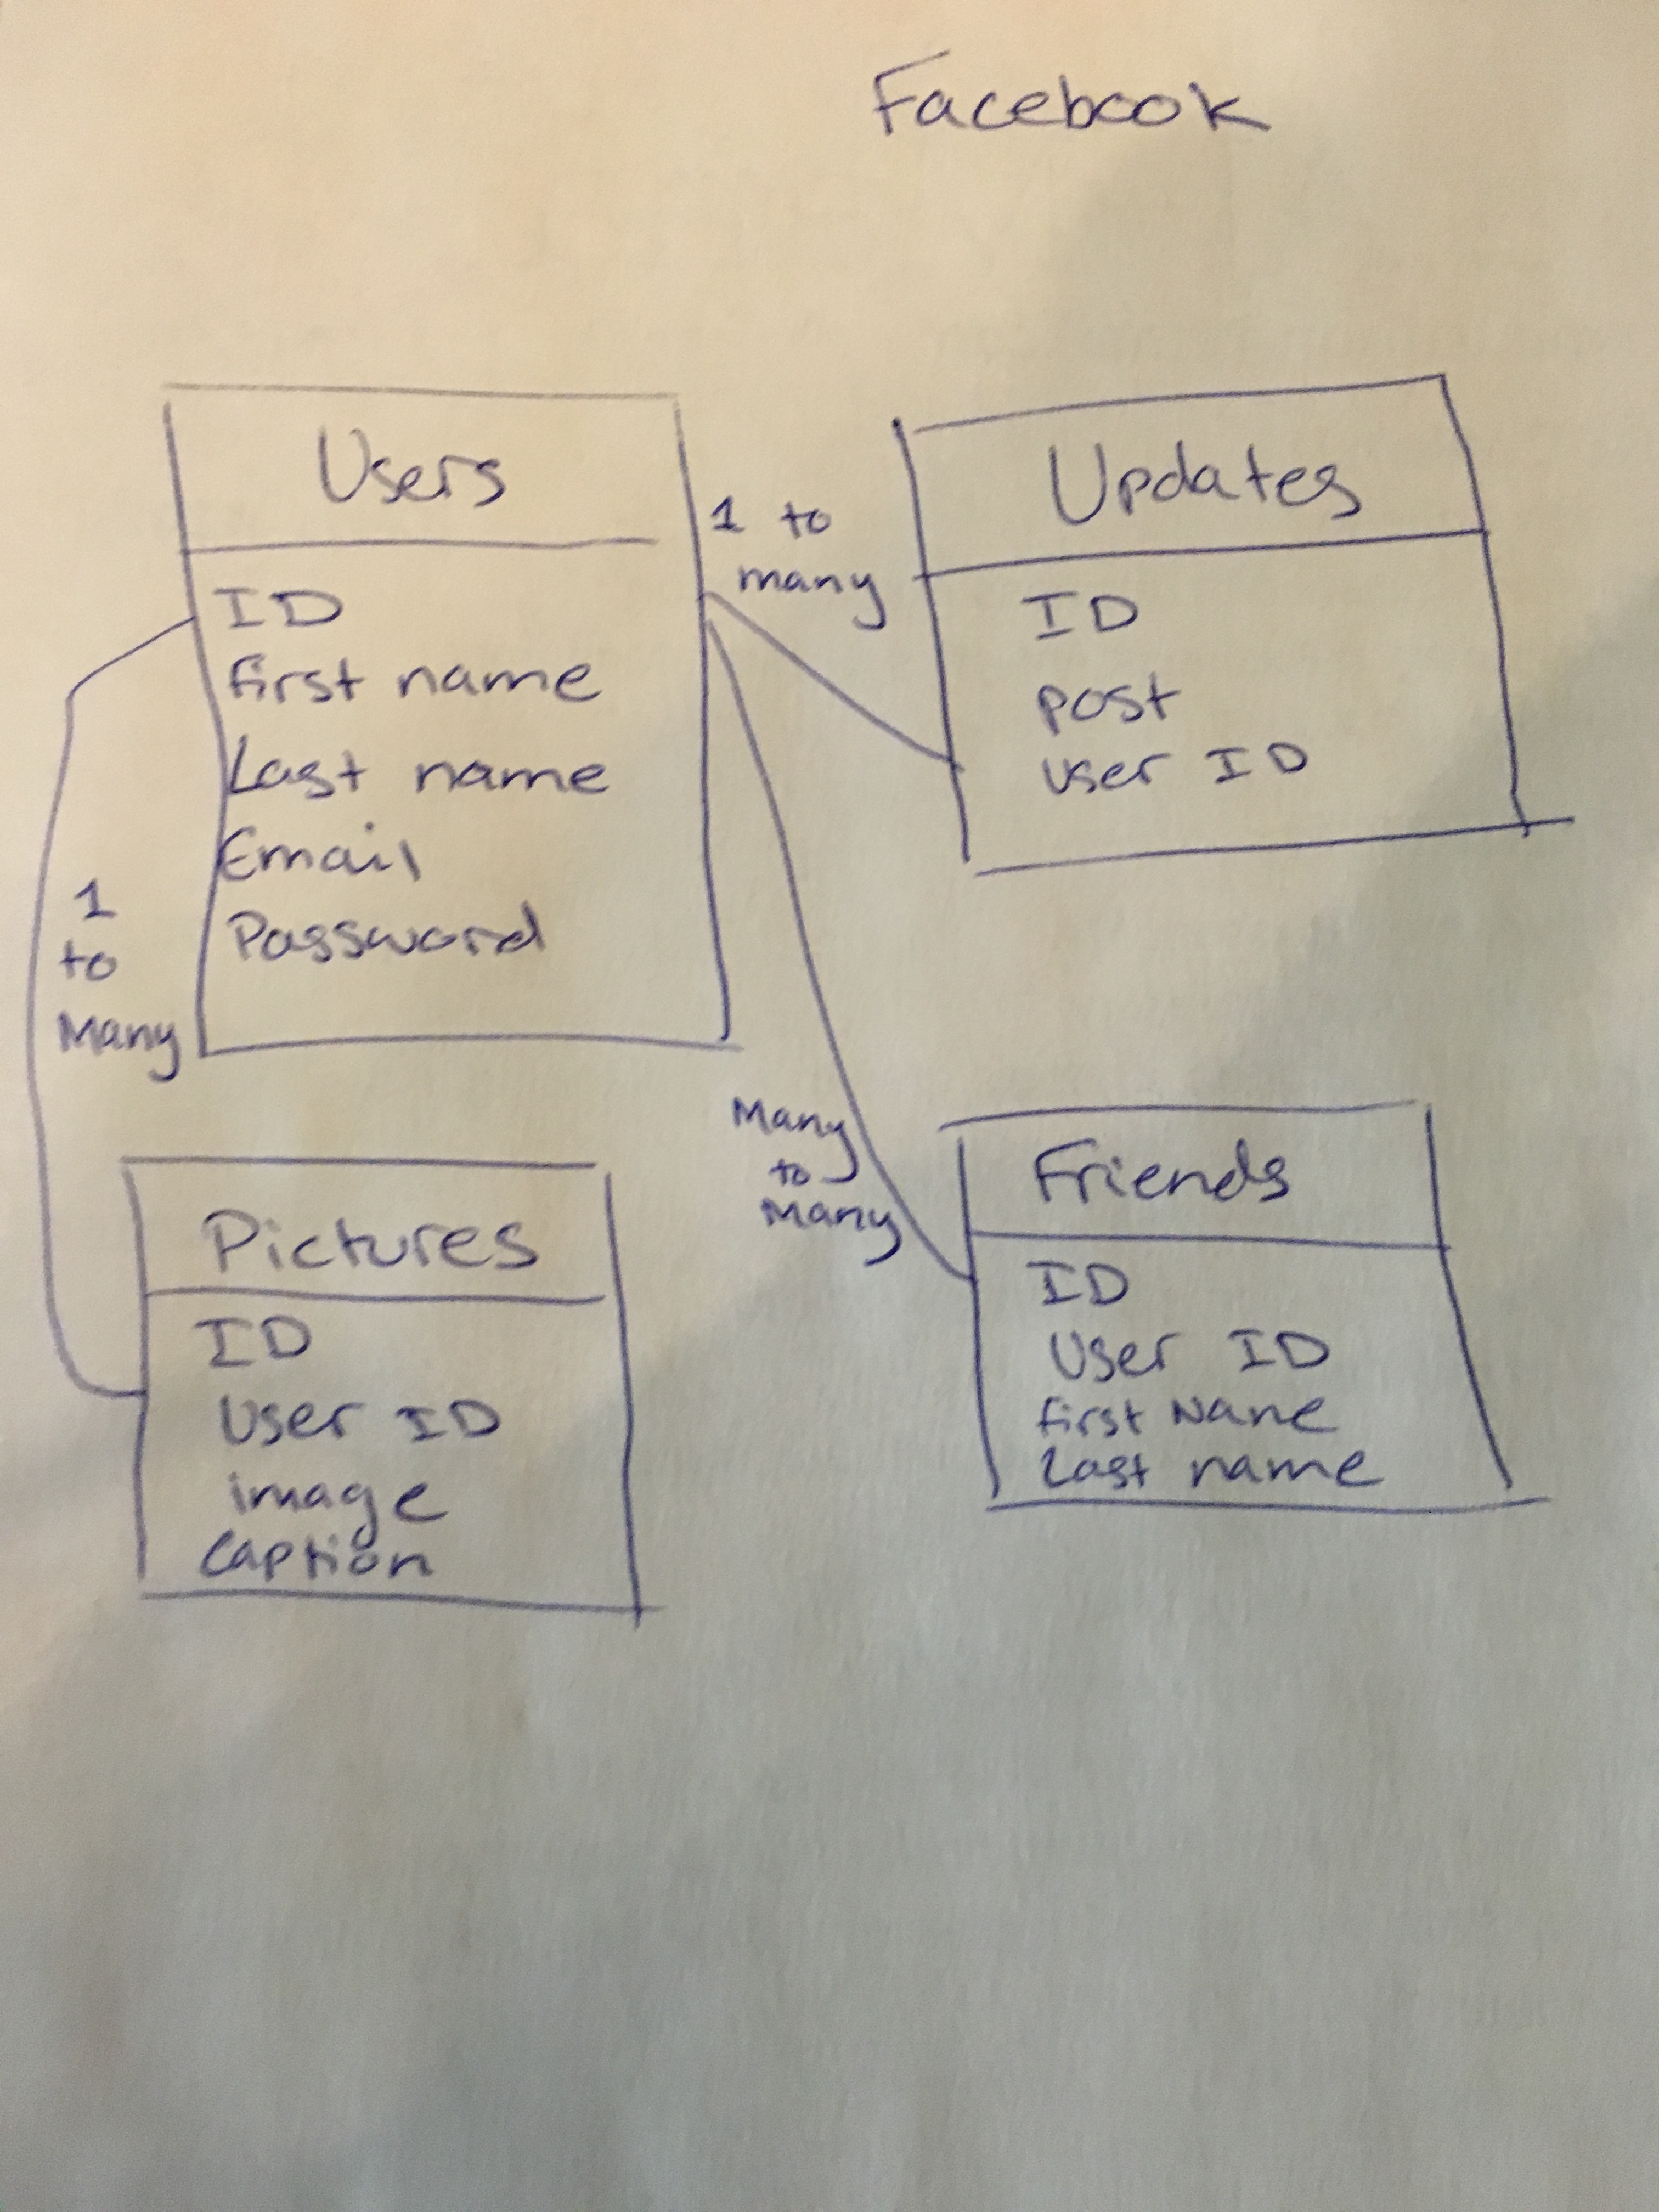 Facebook
Users
ID
first name
Last name
Email
Password
1 to
many
Updates
ID
post
user ID
1
to
Many
Many
to
Many
Pictures
ID
User ID
image
Caption
Friends
ID
User ID
first Name
last name